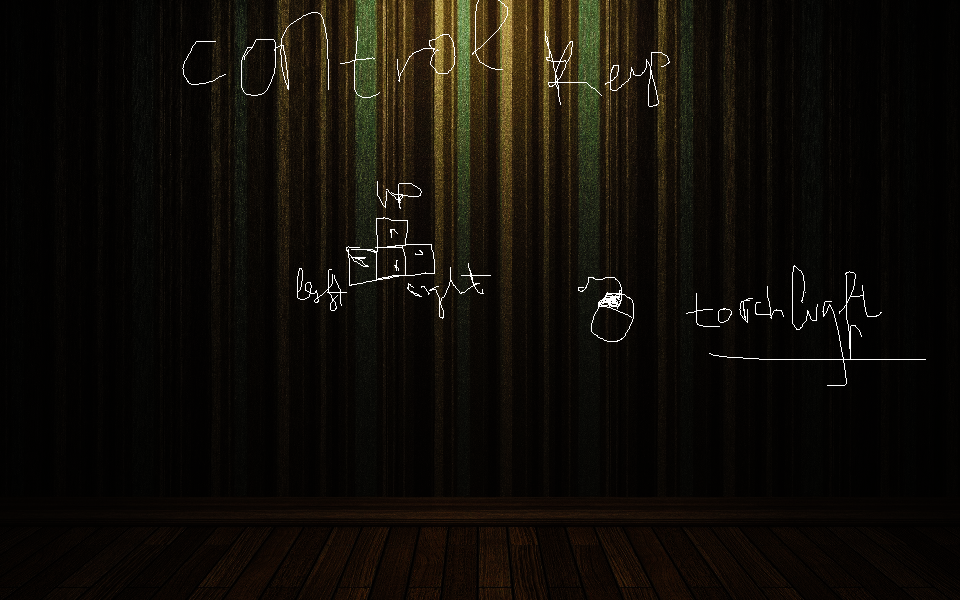 control key
up
left right
torchlight